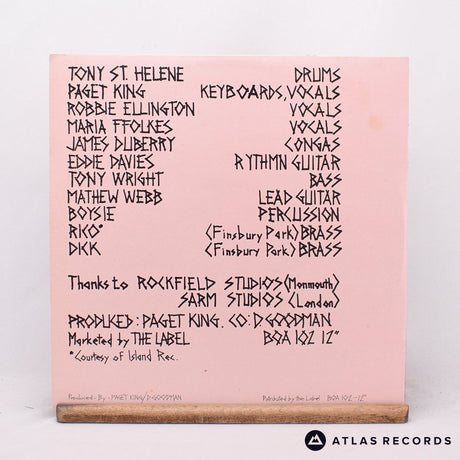 TONY ST. HELENE DRUMS
PAGET KING KEYBOARDS, VOCALS
ROBBIE ELLINGTON VOCALS
MARIA FFOLKES VOCALS
JAMES DUBERRY CONGAS
EDDIE DAVIES RYTHMN GUITAR
TONY WRIGHT BASS
MATHEW WEBB LEAD GUITAR
BOYSIE PERCUSSION
RICO* (Finsbury Park) BRASS
DICK (Finsbury Park) BRASS
Thanks to ROCKFIELD STUDIOS (Monmouth)
SARM STUDIOS (London)
PRODUCED: PAGET KING. CO: D. GOODMAN
Marketed by THE LABEL BOA 102 12"
*Courtesy of Island Rec.
Produced - By - PAGET KING/D. GOODMAN Marketed by The Label BOA 102 - 12"
ATLAS RECORDS